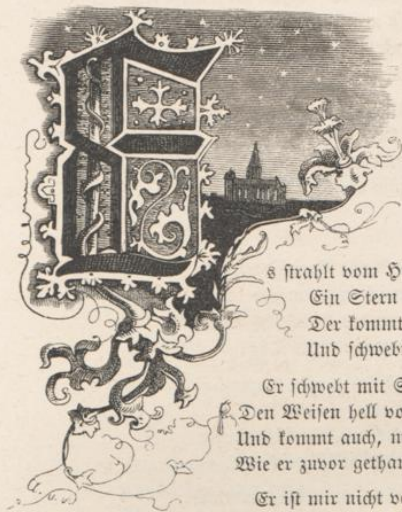 Es strahlt vom H
Ein Stern
Der kommt
Und schwebt
Er schwebt mit S
Den Weisen hell vo
Und kommt auch, n
Wie er zuvor gethan
Er ist mir nicht ve